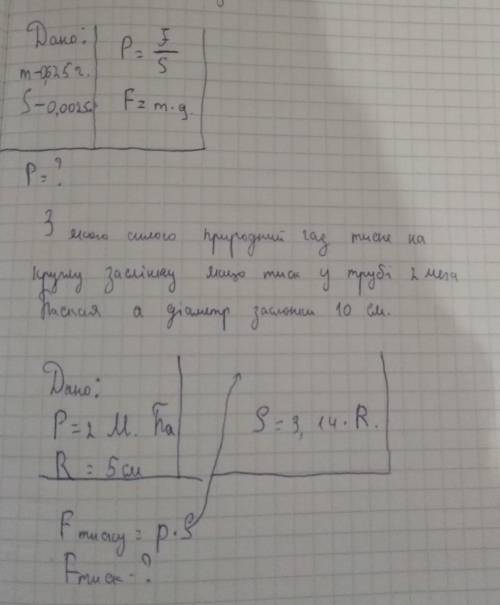 Дано:
m-0,625 г.
S-0,0025
P = F/S
F = m·g.
P = ?
З якою силою природний газ тисне на
круглу заслінку якщо тиск у трубі 2 мега
Паскля а діаметр заслонки 10 см.
Дано:
P = 2 М. Па
R = 5 см
S = 3,14·R.
F тиску = p·S
F тиск - ?